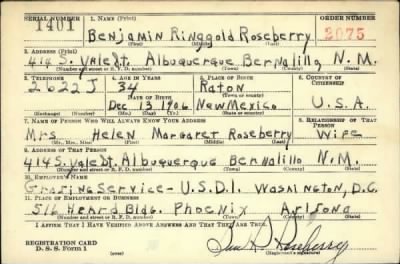 SERIAL NUMBER 1. NAME (Print) ORDER NUMBER
1401 Benjamin Ringgold Roseberry 2075
(First) (Middle) (Last)
2. ADDRESS (Print)
414 S. Yale St. Albuquerque Bernalillo N.M.
(Number and street or R. F. D. number) (Town) (County) (State)
3. TELEPHONE 4. AGE IN YEARS 5. PLACE OF BIRTH 6. COUNTRY OF CITIZENSHIP
2622J 34 Raton
DATE OF BIRTH (Town or county)
Dec 13 1906 New Mexico U.S.A.
(Exchange) (Number) (Mo.) (Day) (Yr.) (State or country)
7. NAME OF PERSON WHO WILL ALWAYS KNOW YOUR ADDRESS 8. RELATIONSHIP OF THAT PERSON
Mrs Helen Margaret Roseberry Wife
(Mr., Mrs., Miss) (First) (Middle) (Last)
9. ADDRESS OF THAT PERSON
414 S. Yale St. Albuquerque Bernalillo N.M.
(Number and street or R. F. D. number) (Town) (County) (State)
10. EMPLOYER'S NAME
Grazing Service - U.S.D.I. Washington, D.C.
11. PLACE OF EMPLOYMENT OR BUSINESS
516 Heard Bldg. Phoenix Arizona
(Number and street or R. F. D. number) (Town) (County) (State)
I AFFIRM THAT I HAVE VERIFIED ABOVE ANSWERS AND THAT THEY ARE TRUE.
REGISTRATION CARD
D. S. S. Form 1
Roseberry
(Registrant's signature)